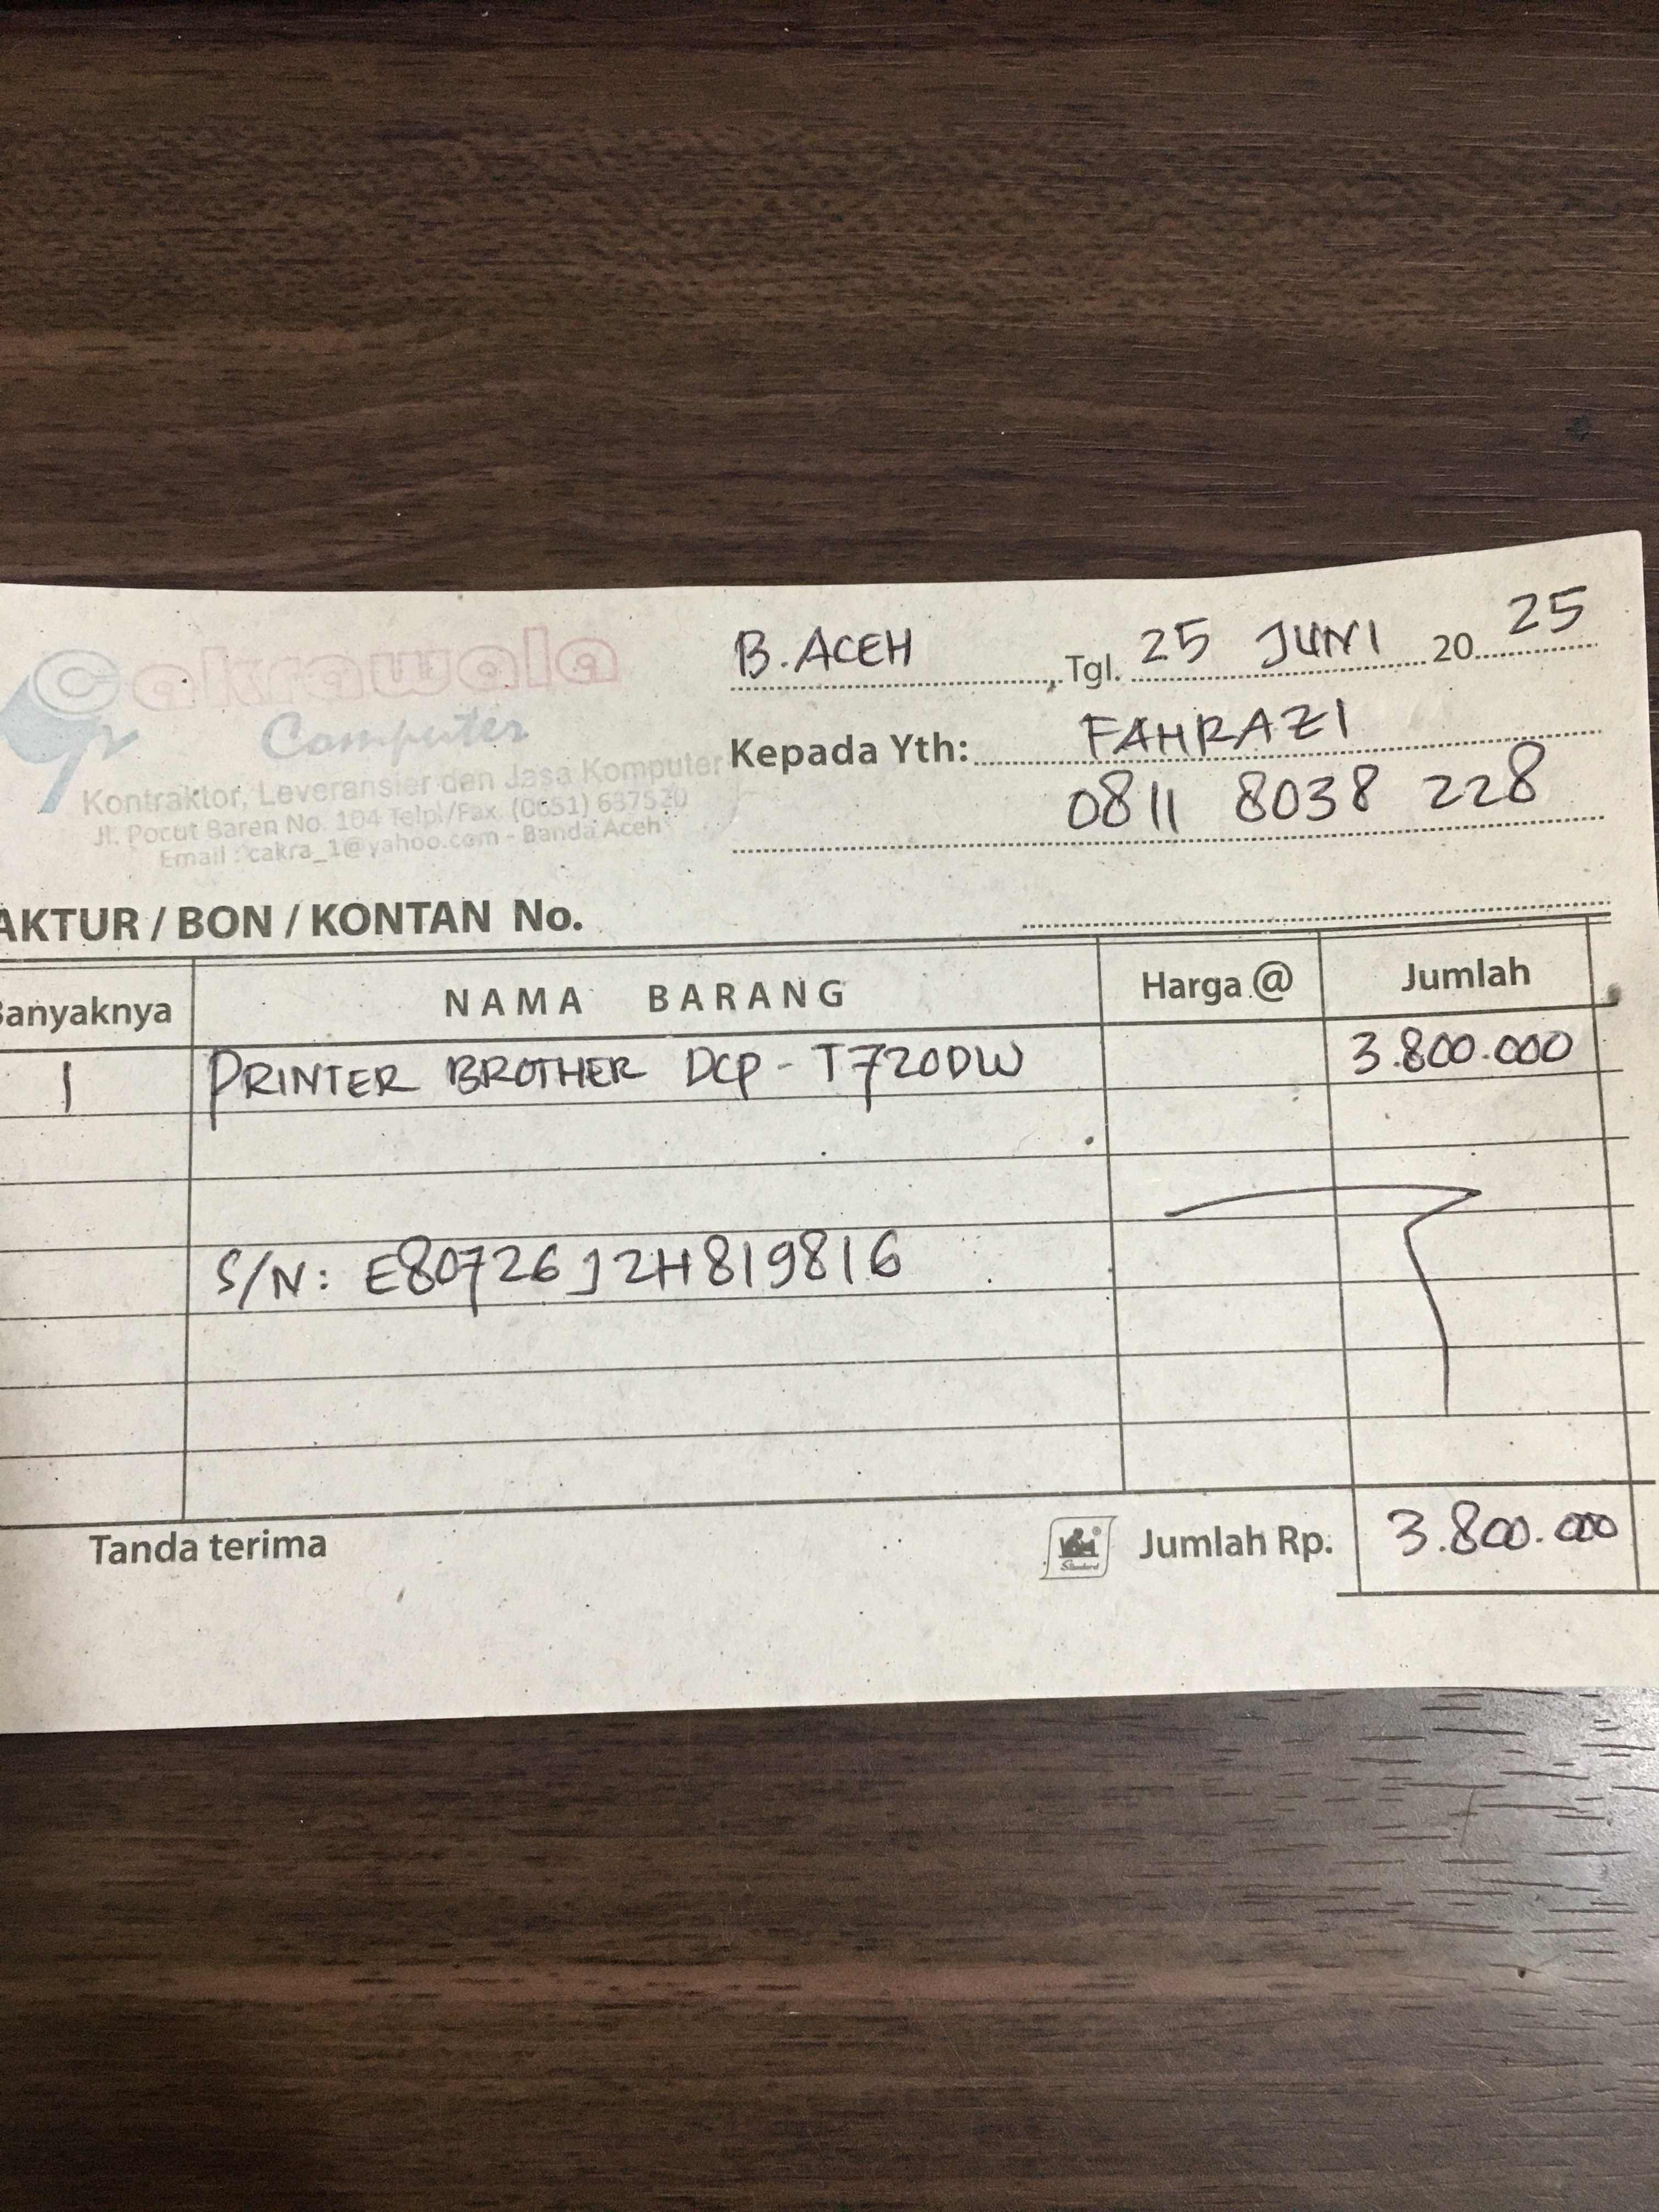 Cakrawala
Computer
Kontraktor, Leveransier dan Jasa Komputer
Jl. Pocut Baren No. 104 Telp./Fax. (0651) 637520
Email : cakra_1@yahoo.com - Banda Aceh
B. ACEH, Tgl. 25 JUNI 20 25
Kepada Yth: FAHRAZI
0811 8038 228
AKTUR / BON / KONTAN No.
Banyaknya NAMA BARANG Harga @ Jumlah
1 PRINTER BROTHER DCP - T720DW 3.800.000
S/N: E80726J2H819816
Tanda terima Jumlah Rp. 3.800.000
Standard